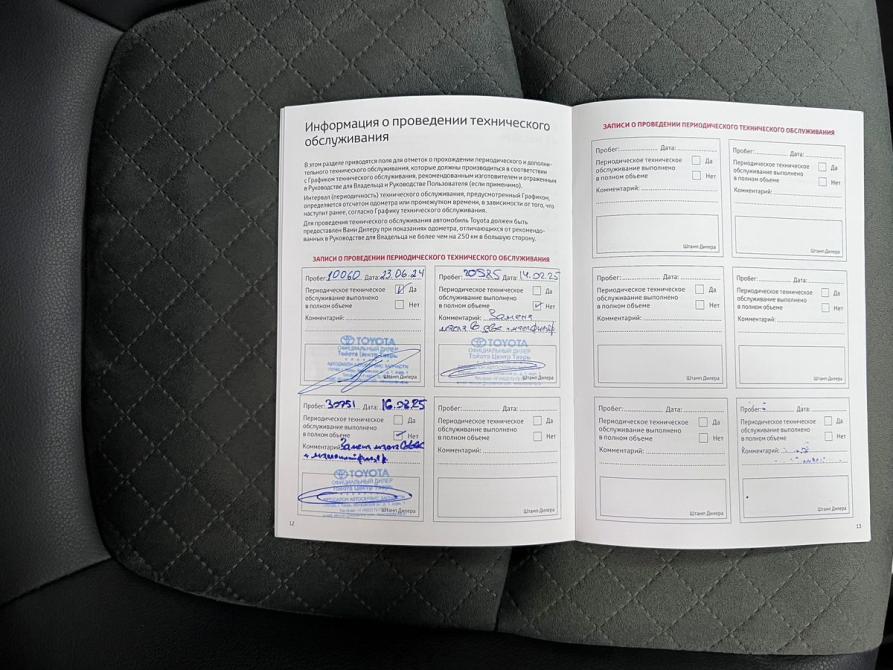 Информация о проведении технического
обслуживания
В этом разделе приводятся поля для отметок о прохождении периодического и дополни-
тельного технического обслуживания, которые должны производиться в соответствии
с Графиком технического обслуживания, рекомендованным изготовителем и отраженным
в Руководстве для Владельца и Руководстве Пользователя (если применимо).
Интервал (периодичность) технического обслуживания, предусмотренный Графиком,
определяется отсчетом одометра или промежутком времени, в зависимости от того, что
наступит ранее, согласно Графику технического обслуживания.
Для проведения технического обслуживания автомобиль Toyota должен быть
предоставлен Вами Дилеру при показаниях одометра, отличающихся от рекомендо-
ванных в Руководстве для Владельца не более чем на 250 км в большую сторону.
ЗАПИСИ О ПРОВЕДЕНИИ ПЕРИОДИЧЕСКОГО ТЕХНИЧЕСКОГО ОБСЛУЖИВАНИЯ
Пробег: 10060 Дата: 23.06.24
Периодическое техническое
обслуживание выполнено
в полном объеме
Да
Нет
Комментарий:
TOYOTA
ОФИЦИАЛЬНЫЙ ДИЛЕР
Тойота Центр Тверь
Штамп Дилера
Пробег: 20585 Дата: 14.02.25
Периодическое техническое
обслуживание выполнено
в полном объеме
Да
Нет
Комментарий: Замена
масла в две
TOYOTA
ОФИЦИАЛЬНЫЙ ДИЛЕР
Тойота Центр Тверь
Штамп Дилера
Пробег: 30751 Дата: 16.08.25
Периодическое техническое
обслуживание выполнено
в полном объеме
Да
Нет
Комментарий: Замена масла
TOYOTA
ОФИЦИАЛЬНЫЙ ДИЛЕР
Тойота Центр Тверь
Штамп Дилера
Пробег: Дата:
Периодическое техническое
обслуживание выполнено
в полном объеме
Да
Нет
Комментарий:
Штамп Дилера
12
ЗАПИСИ О ПРОВЕДЕНИИ ПЕРИОДИЧЕСКОГО ТЕХНИЧЕСКОГО ОБСЛУЖИВАНИЯ
Пробег: Дата:
Периодическое техническое
обслуживание выполнено
в полном объеме
Да
Нет
Комментарий:
Штамп Дилера
Пробег: Дата:
Периодическое техническое
обслуживание выполнено
в полном объеме
Да
Нет
Комментарий:
Штамп Дилера
Пробег: Дата:
Периодическое техническое
обслуживание выполнено
в полном объеме
Да
Нет
Комментарий:
Штамп Дилера
Пробег: Дата:
Периодическое техническое
обслуживание выполнено
в полном объеме
Да
Нет
Комментарий:
Штамп Дилера
Пробег: Дата:
Периодическое техническое
обслуживание выполнено
в полном объеме
Да
Нет
Комментарий:
Штамп Дилера
Пробег: Дата:
Периодическое техническое
обслуживание выполнено
в полном объеме
Да
Нет
Комментарий:
Штамп Дилера
13